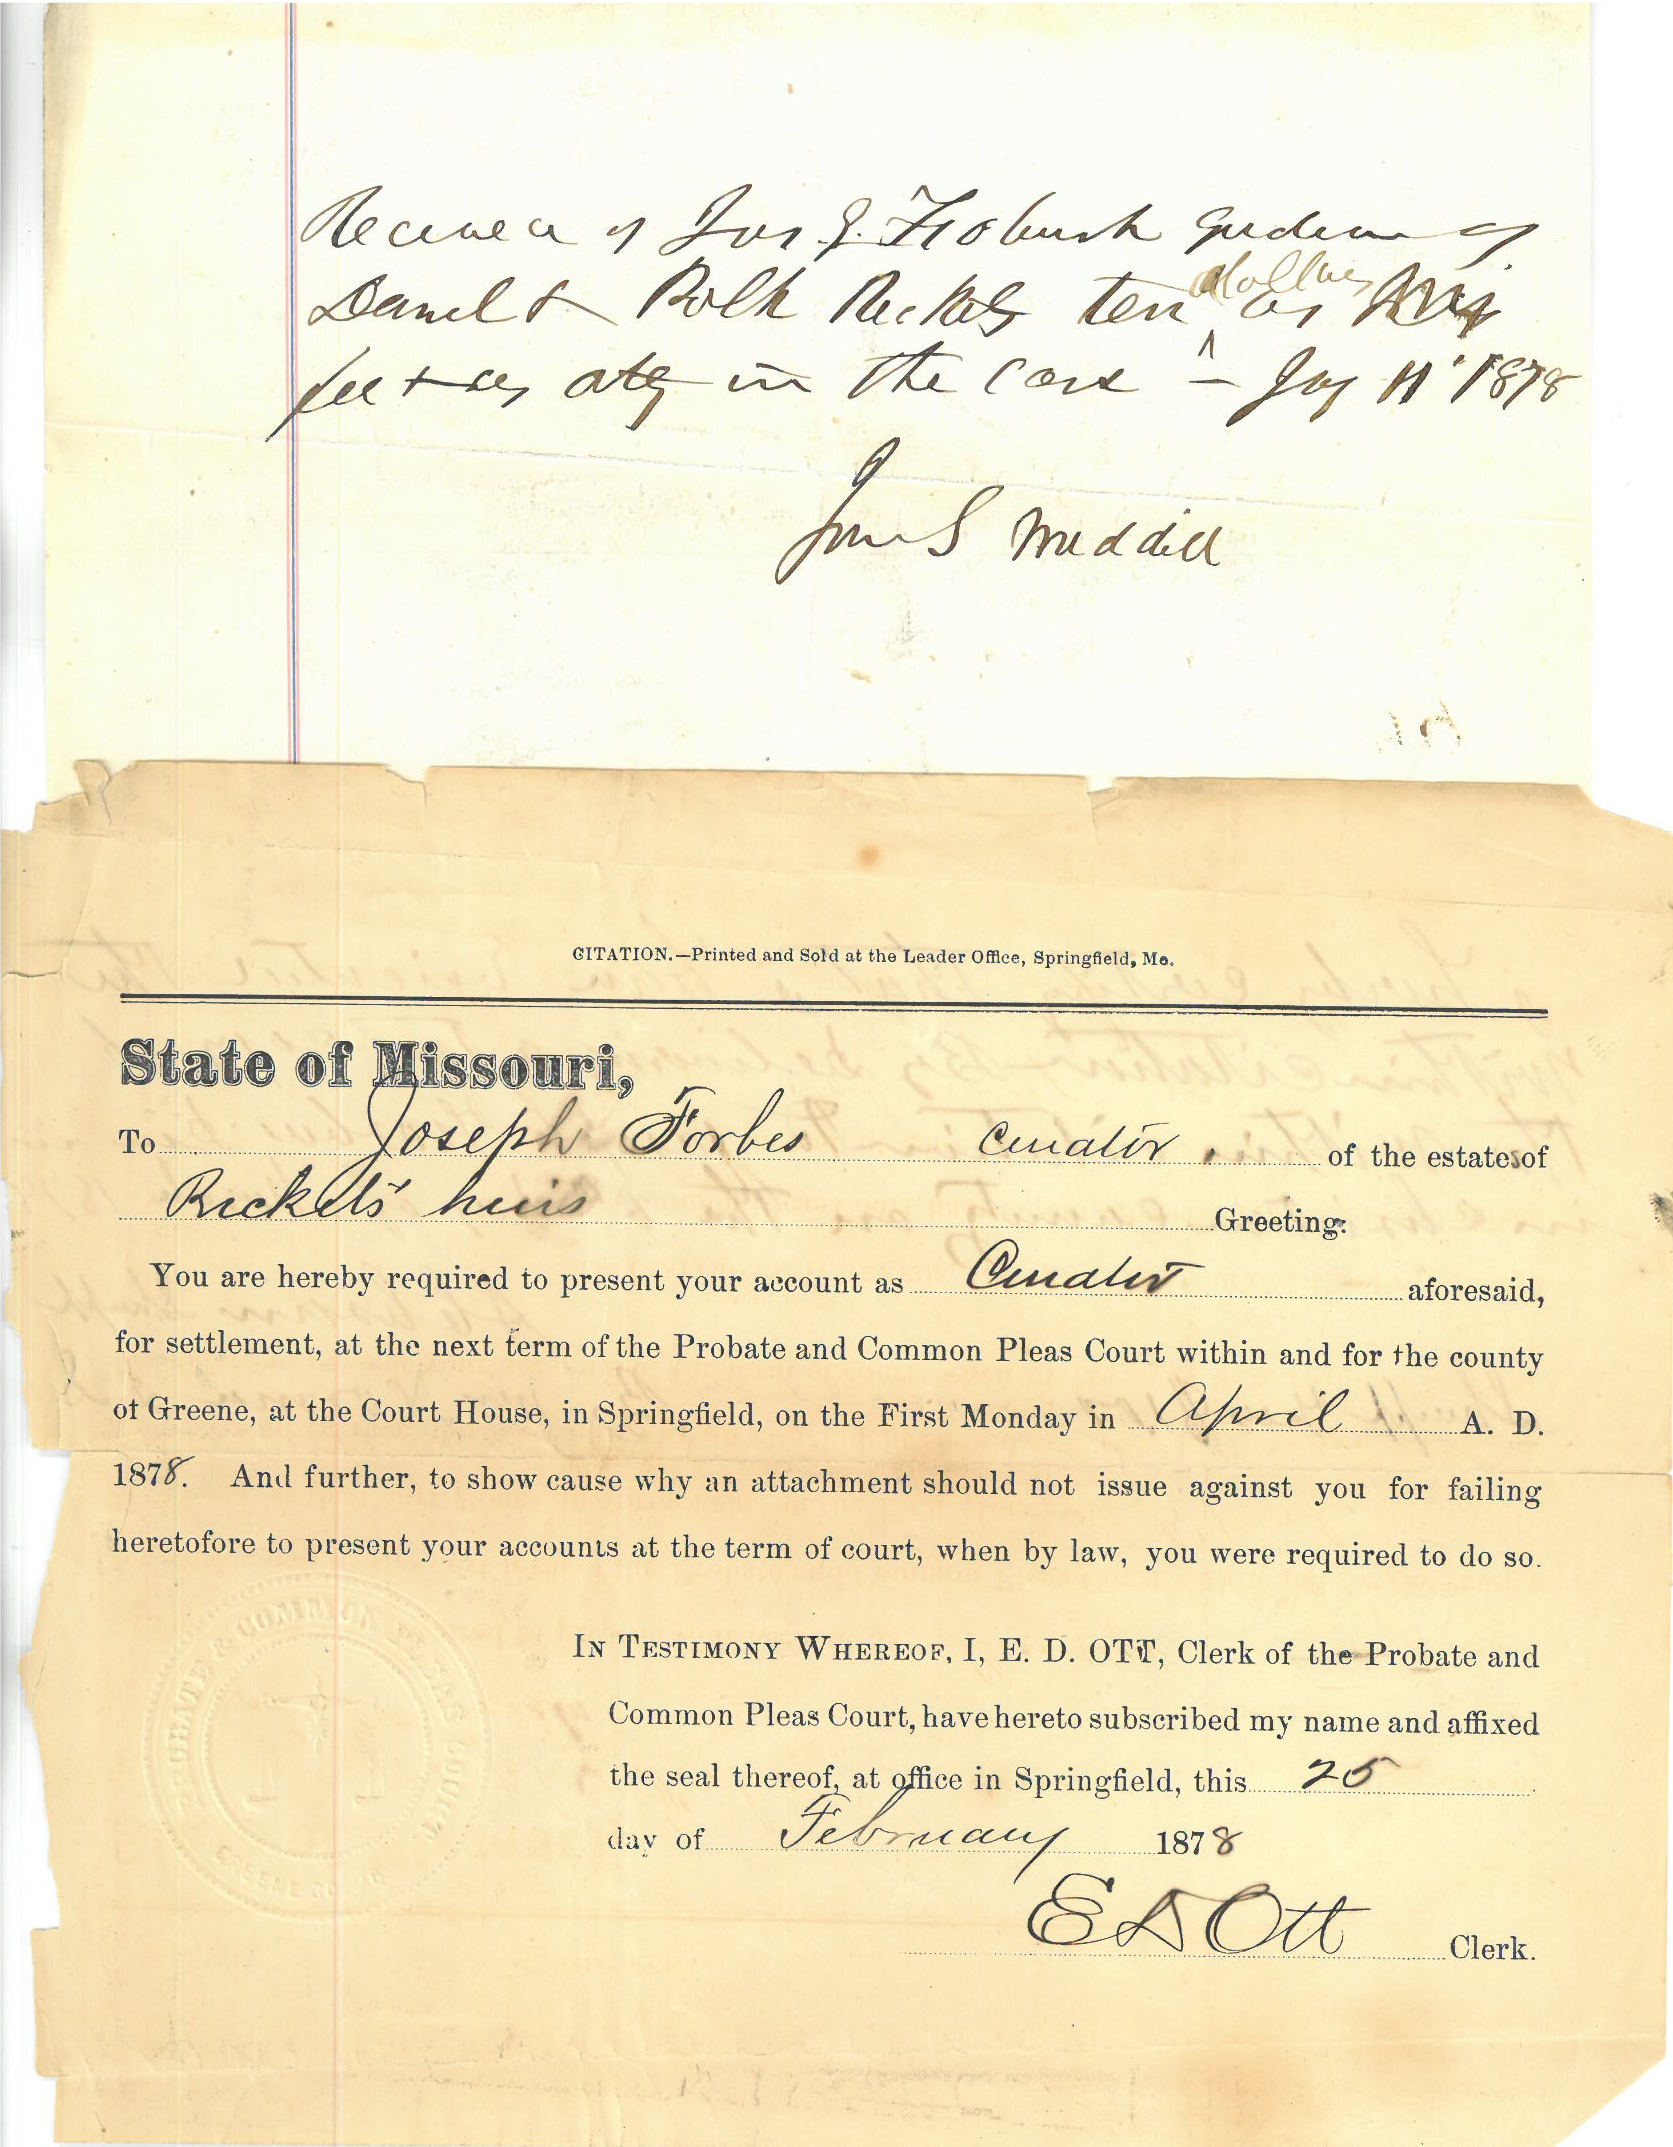 Received of Jos J. Frobush Gurdian of
Daniel & Polk Rickets ten dollars as
fee as atty in the case – Jay 11 1878
Jno S Waddill
CITATION.—Printed and Sold at the Leader Office, Springfield, Mo.
State of Missouri,
To Joseph Forbes Curator of the estates of
Rickets heirs Greeting:
You are hereby required to present your account as Curator aforesaid,
for settlement, at the next term of the Probate and Common Pleas Court within and for the county
of Greene, at the Court House, in Springfield, on the First Monday in April A. D.
1878. And further, to show cause why an attachment should not issue against you for failing
heretofore to present your accounts at the term of court, when by law, you were required to do so.
IN TESTIMONY WHEREOF, I, E. D. OTT, Clerk of the Probate and
Common Pleas Court, have hereto subscribed my name and affixed
the seal thereof, at office in Springfield, this 25
day of February 1878
E D Ott Clerk.
PROBATE & COMMON PLEAS COURT
GREENE CO. MO